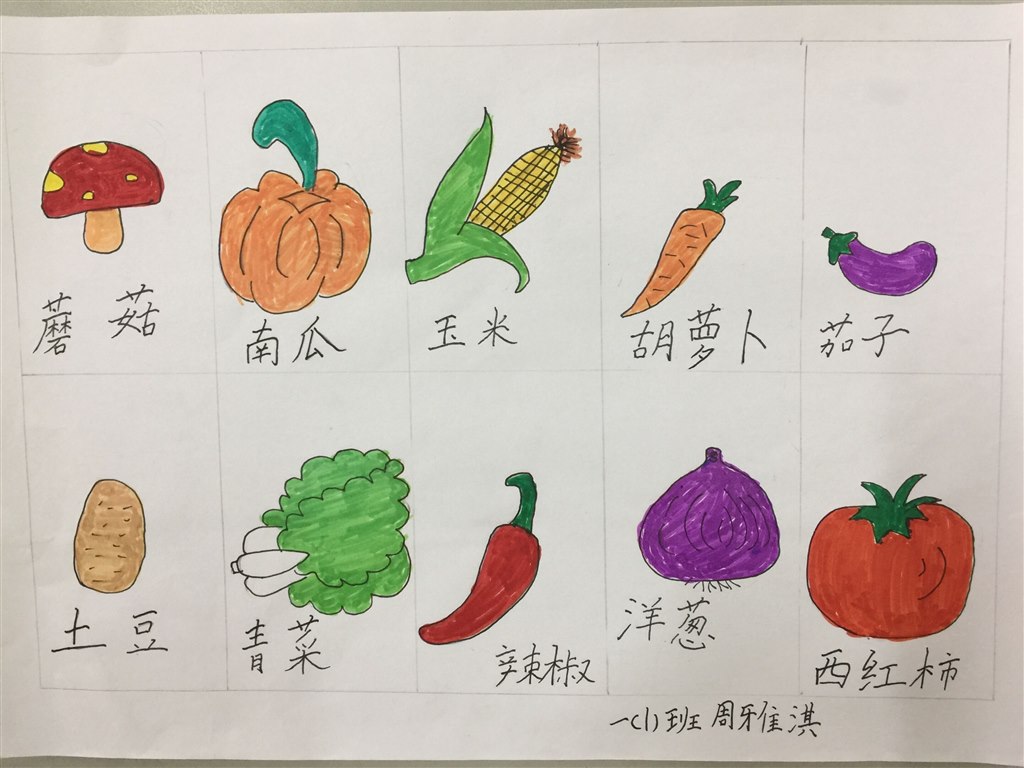 蘑菇
南瓜
玉米
胡萝卜
茄子
土豆
青菜
辣椒
洋葱
西红柿
一(1)班 周雅淇